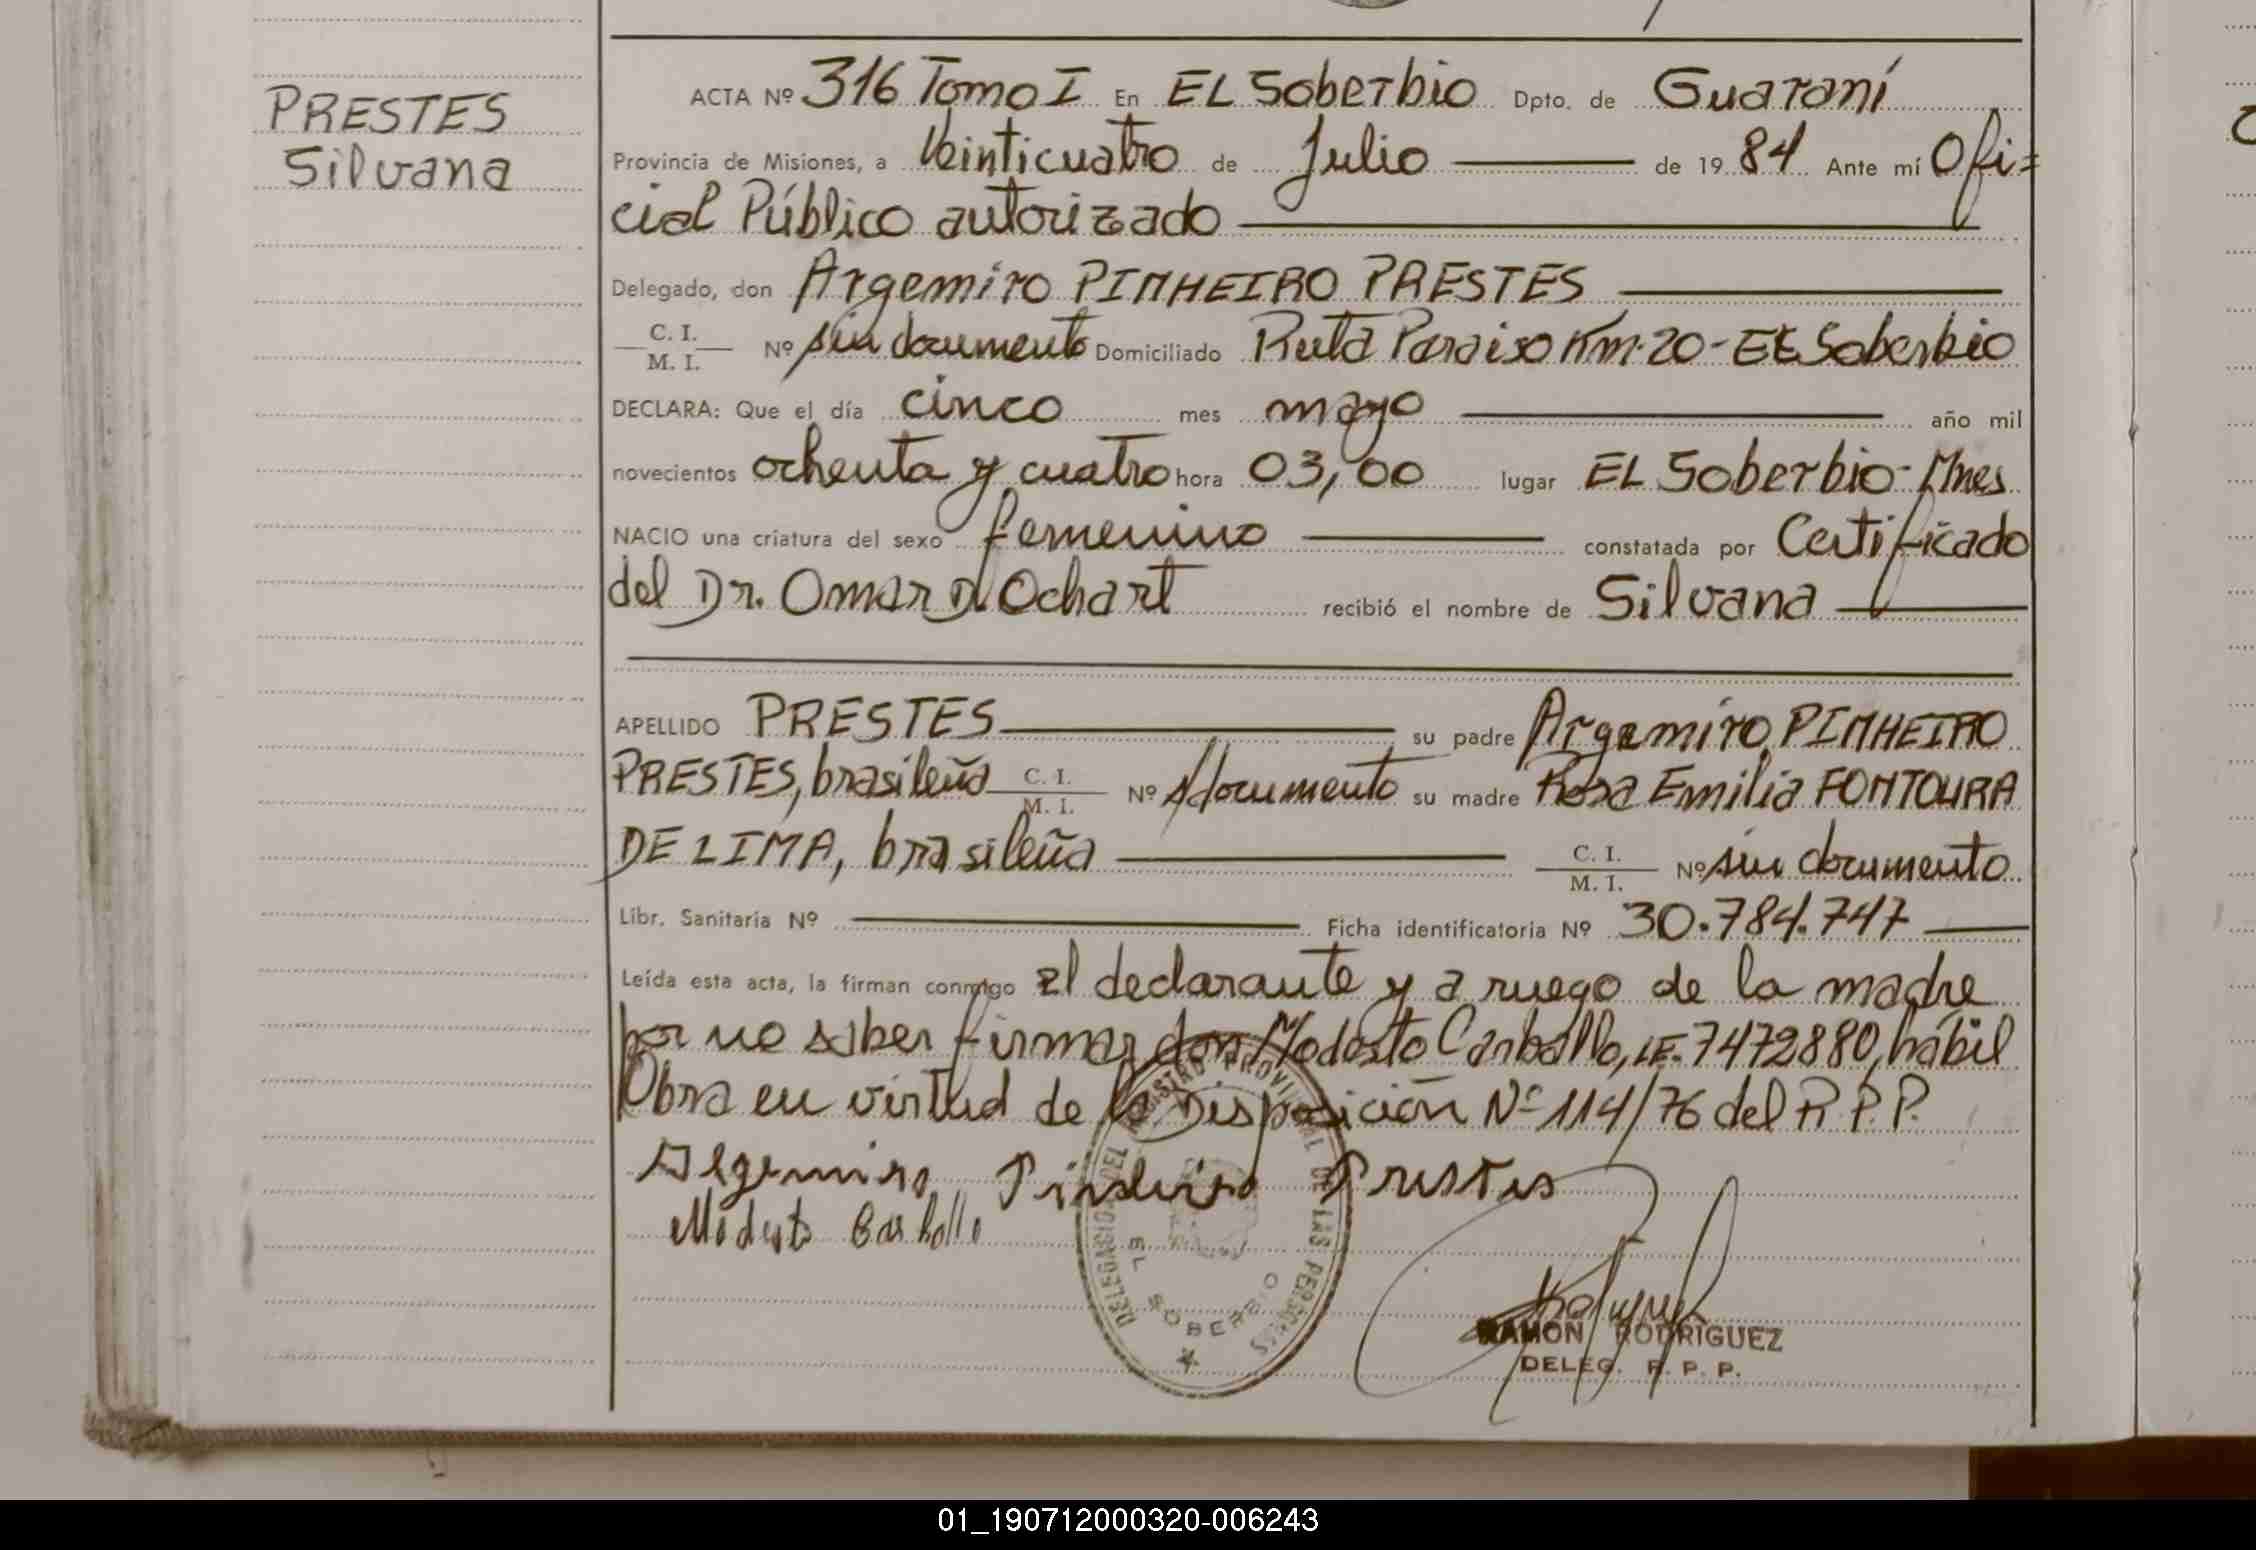 PRESTES
Silvana
ACTA Nº 316 Tomo I En EL Soberbio Dpto. de Guaraní
Provincia de Misiones, a Veinticuatro de Julio de 1984 Ante mí Ofi=
cial Público autorizado
Delegado, don Argemiro PINHEIRO PRESTES
C. I.
M. I. Nº sin documento Domiciliado Ruta Paraiso Km. 20 - EL Soberbio
DECLARA: Que el día cinco mes mayo año mil
novecientos ochenta y cuatro hora 03,00 lugar EL Soberbio - Mnes
NACIO una criatura del sexo femenino constatada por Certificado
del Dr. Omar D. Ochart recibió el nombre de Silvana
APELLIDO PRESTES su padre Argemiro PINHEIRO
PRESTES, brasileña C. I. M. I. Nº s/documento su madre Rosa Emilia FONTOURA
DE LIMA, brasileña C. I. M. I. Nº sin documento
Libr. Sanitaria Nº Ficha identificatoria Nº 30.784.747
Leída esta acta, la firman conmigo El declarante y a ruego de la madre
por no saber firmar don Modesto Carballo, LE. 7472880, hábil
Obra en virtud de la Disposición Nº 114/76 del R. P. P.
Algemiro Pinheiro Prestes
Modesto Carballo
DELEGACION DEL REGISTRO PROVINCIAL DE LAS PERSONAS
EL SOBERBIO
RAMON RODRIGUEZ
DELEG. R. P. P.
01_190712000320-006243